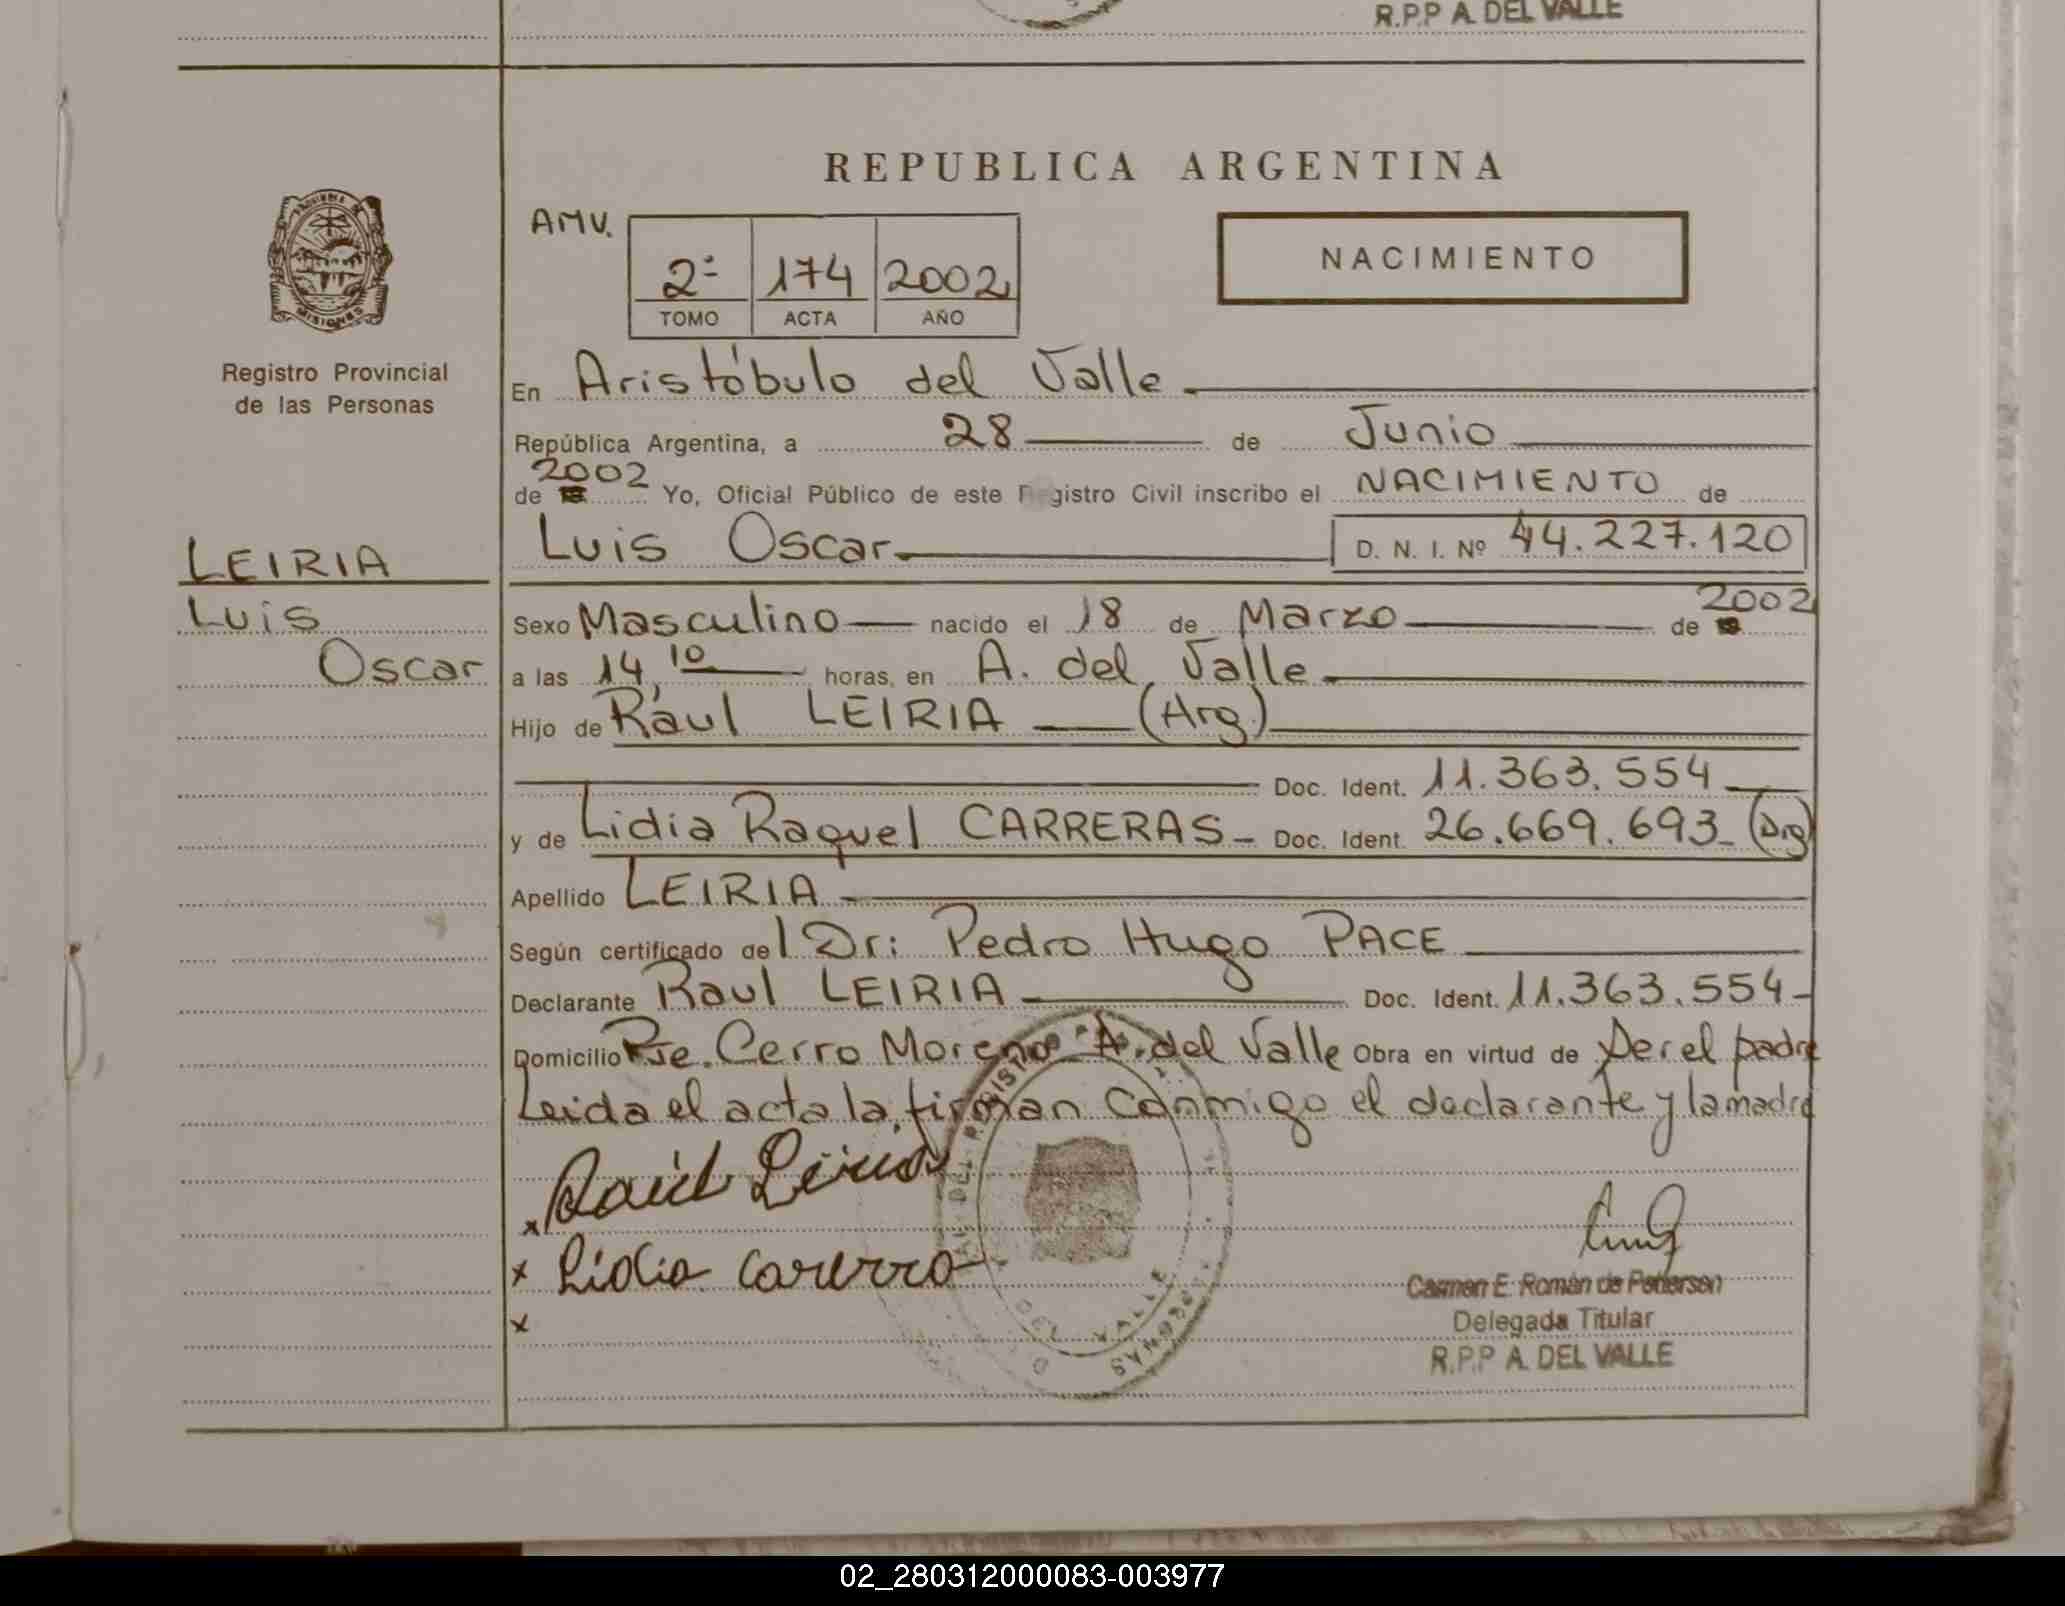 R.P.P A. DEL VALLE
REPUBLICA ARGENTINA
AMV.
2ª 174 2002
TOMO ACTA AÑO
NACIMIENTO
MISIONES
Registro Provincial
de las Personas
En Aristóbulo del Valle
República Argentina, a 28 de Junio
de 2002 Yo, Oficial Público de este Registro Civil inscribo el NACIMIENTO de
LEIRIA
Luis
Oscar
Luis Oscar D. N. I. Nº 44.227.120
Sexo Masculino nacido el 18 de Marzo de 2002
a las 14,10 horas, en A. del Valle
Hijo de Raul LEIRIA (Arg.)
Doc. Ident. 11.363.554
y de Lidia Raquel CARRERAS Doc. Ident. 26.669.693 (Arg)
Apellido LEIRIA
Según certificado del Dr: Pedro Hugo PACE
Declarante Raul LEIRIA Doc. Ident. 11.363.554
Domicilio Pje. Cerro Moreno A. del Valle Obra en virtud de Ser el padre
Leida el acta la firman conmigo el declarante y la madre
x Raúl Leiria
x Lidia Carerro
x
DEL VALLE
Carmen E. Román de Petterson
Delegada Titular
R.P.P A. DEL VALLE
02_280312000083-003977